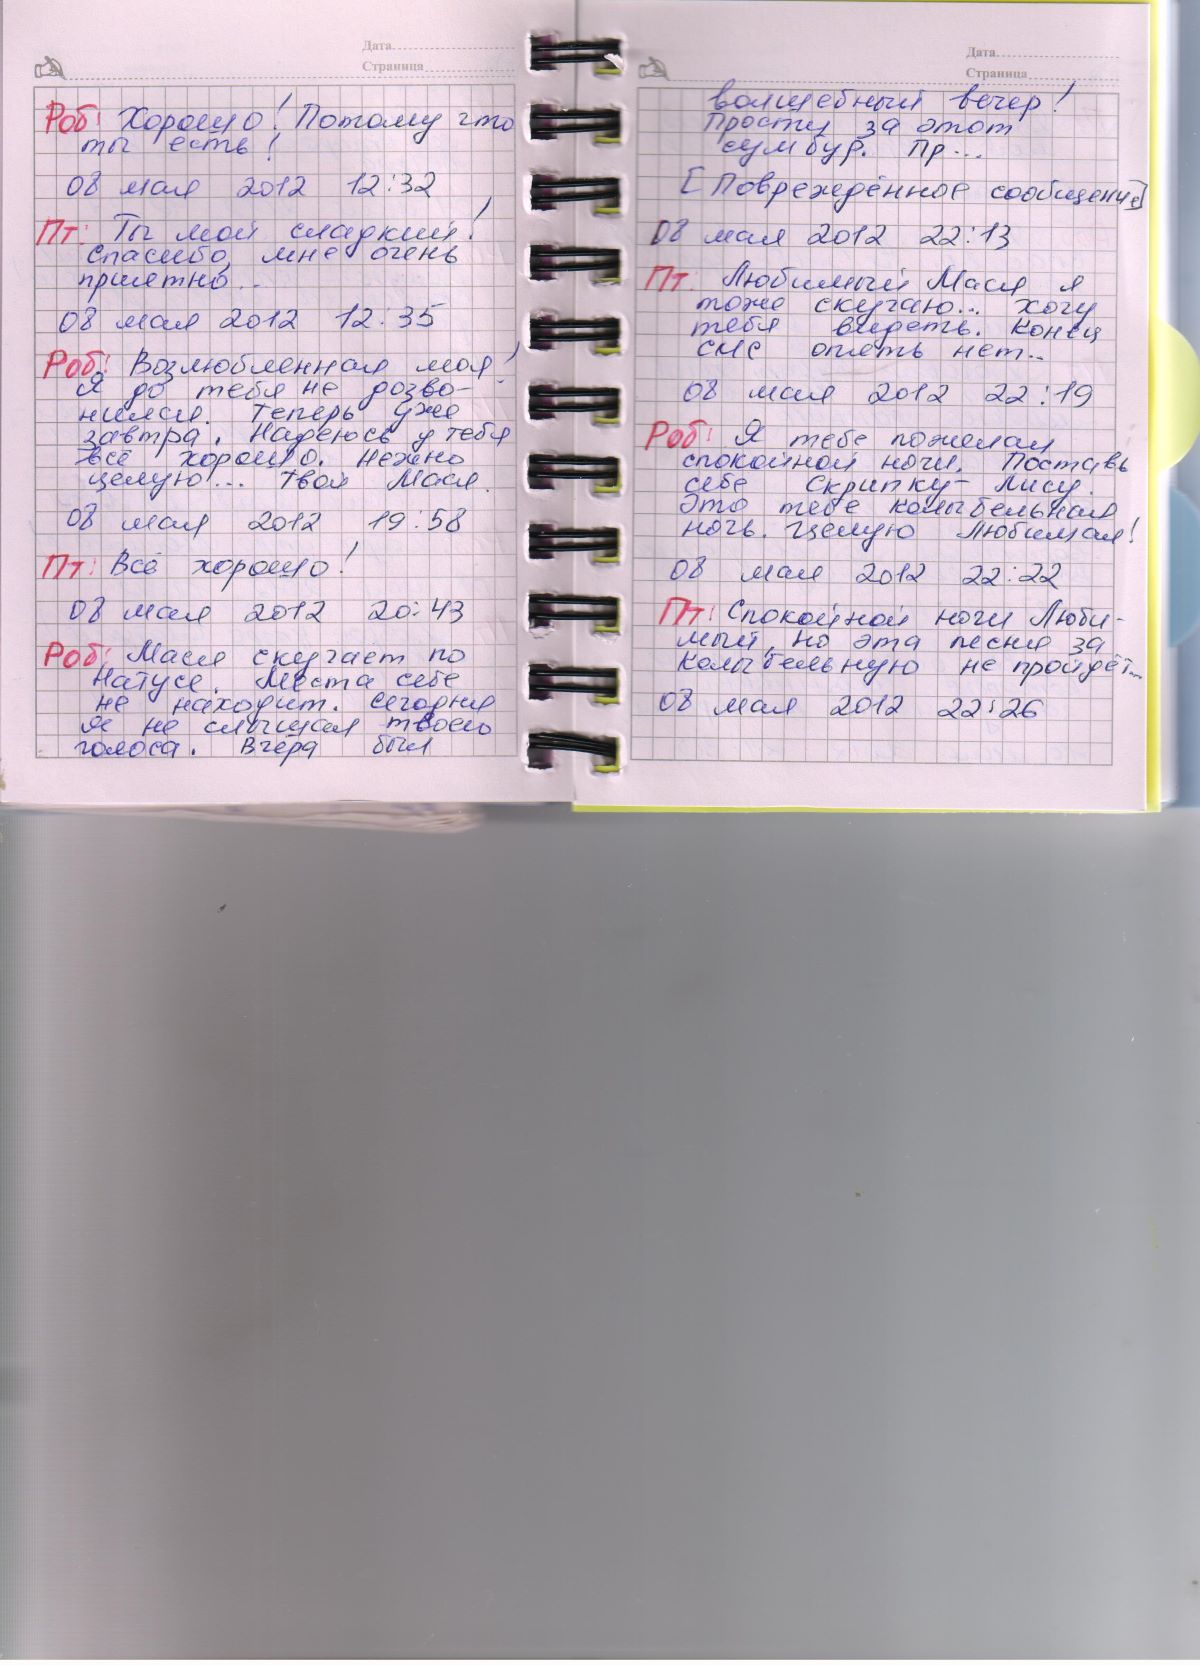 Дата
Страница
Роб: Хорошо! Потому что
ты есть!
08 мая 2012 12:32
Пт: Ты мой сладкий!
Спасибо, мне очень
приятно...
08 мая 2012 12:35
Роб: Возлюбленная моя!
Я до тебя не дозво-
нился. Теперь уже
завтра. Надеюсь у тебя
всё хорошо. Нежно
целую... Твой Мася.
08 мая 2012 19:58
Пт: Всё хорошо!
08 мая 2012 20:43
Роб: Мася скучает по
Натусе. Места себе
не находит. Сегодня
я не слышал твоего
голоса. Вчера был
Дата
Страница
волшебный вечер!
Прости за этот
сумбур. Пр...
[Повреждённое сообщение]
08 мая 2012 22:13
Пт. Любимый Мася я
тоже скучаю... хочу
тебя видеть. Конец
СМС опять нет..
08 мая 2012 22:19
Роб: Я тебе пожелал
спокойной ночи. Поставь
себе Скрипку-Лису.
Это тебе колыбельная
ночь. Целую Любимая!
08 мая 2012 22:22
Пт: Спокойной ночи Люби-
мый, но эта песня за
колыбельную не пройдёт...
08 мая 2012 22:26